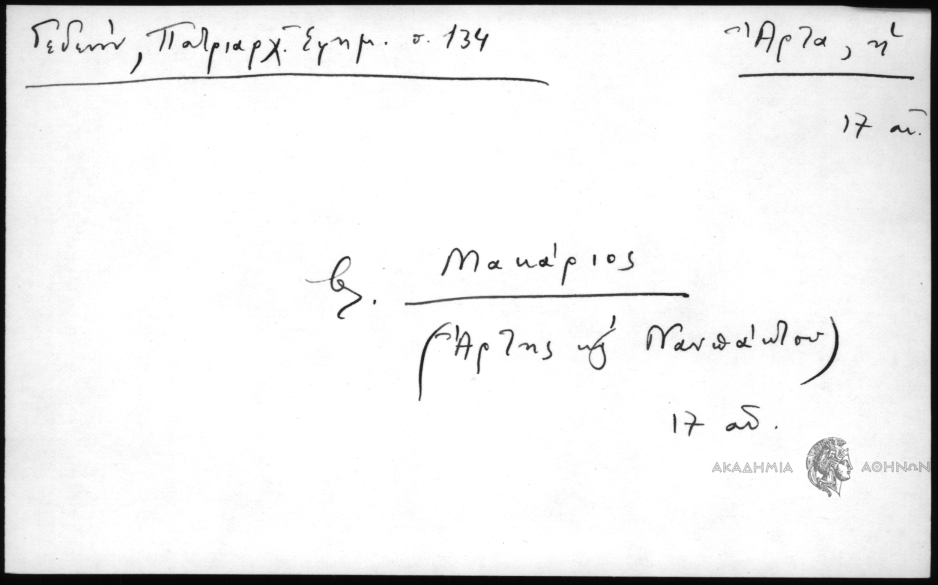 Γεδεών, Πατριαρχ. Εφημ. σ. 134
Ἄρτα, ἡ
17 αἰ.
βλ. Μακάριος
(Ἄρτης καὶ Ναυπάκτου)
17 αἰ.
ΑΚΑΔΗΜΙΑ ΑΘΗΝΩΝ